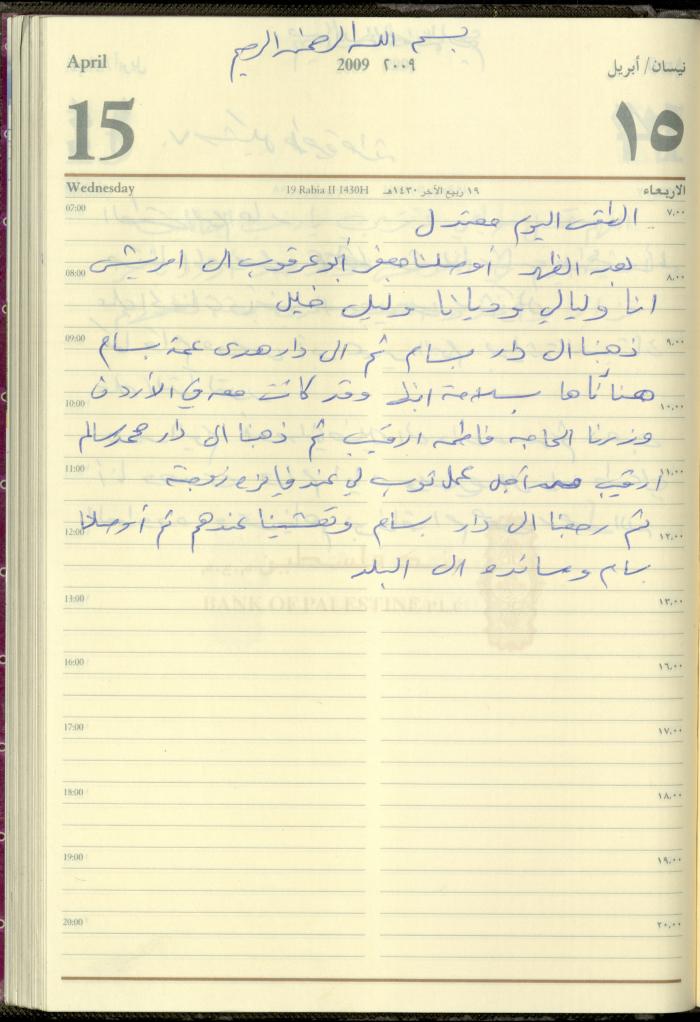 بسم الله الرحمن الرحيم
April 2009 ٢٠٠٩ نيسان/أبريل
15 ١٥
Wednesday 19 Rabia II 1430H ١٩ ربيع الآخر ١٤٣٠هـ الاربعاء
07:00 الطقس اليوم معتدل ٧,٠٠
بعد الظهر أوصلنا جعفر أبو عرقوب ال امريش
08:00 ٨,٠٠
انا وليالي وديانا وليل خليل
09:00 ذهبنا ال دار بسام ثم ال دار هدى عمة بسام ٩,٠٠
هنأناها بسلامة ابنها وقد كانت معه في الأردن
10:00 ١٠,٠٠
وزرنا الحاجه فاطمه ثم ذهبنا ال دار محمد سالم
11:00 أجل عمل ثوب لي عند فايزه زوجته ١١,٠٠
ثم رجعنا ال دار بسام وتعشينا عندهم ثم أوصلنا
12:00 ١٢,٠٠
بسام وسائده ال البلد
13:00 ١٣,٠٠
BANK OF PALESTINE PLC
16:00 ١٦,٠٠
17:00 ١٧,٠٠
18:00 ١٨,٠٠
19:00 ١٩,٠٠
20:00 ٢٠,٠٠